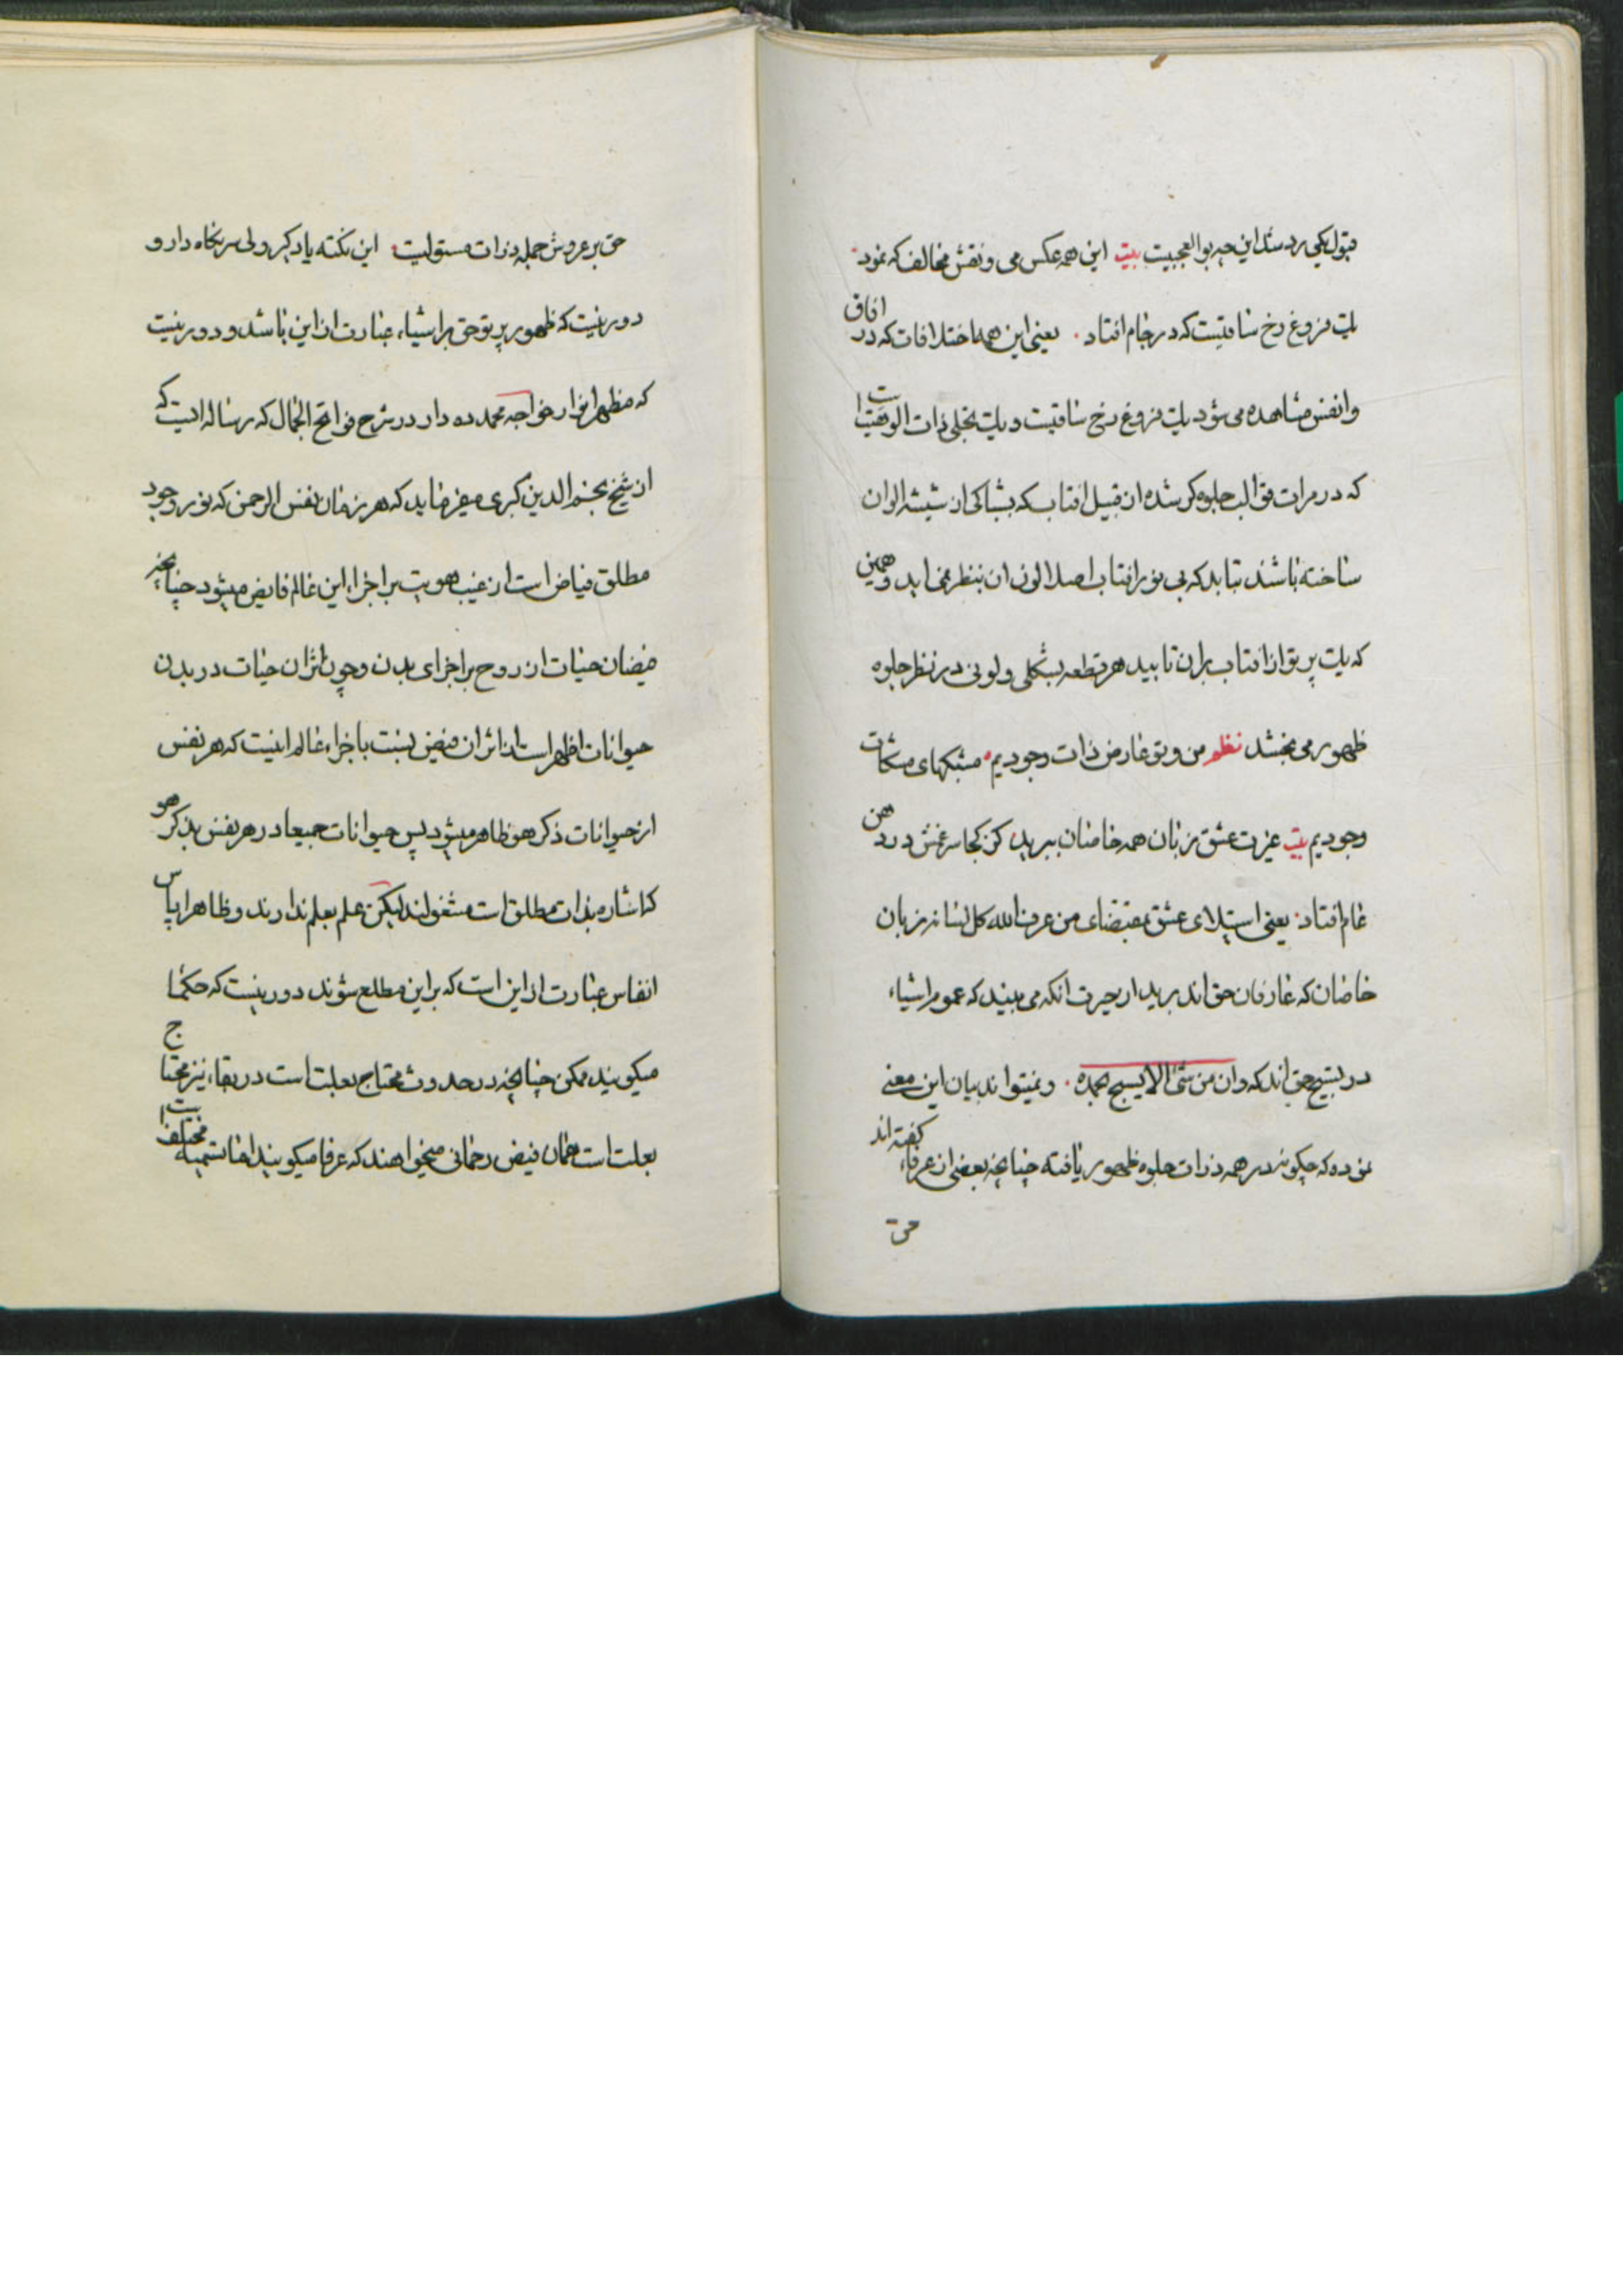 قبول یکی رد شد این چه بوالعجبیت بیت این همه عکس می و نقش مخالف که نمود
یک فروغ رخ ساقیست که در جام افتاد یعنی این همه اختلافات که در افاق
وانفس مشاهده می شود یک فروغ رخ ساقیست و یک تجلی ذات الوهیت است
که در مرات قوالب جلوه کر شده از قبیل افتاب که بشباکی از شیشه الوان
ساخته باشند بتابد که بی نور افتاب اصلا لون ان بنظر نمی اید و همین
که یک پرتو از افتاب بران تابید هر قطعه بشکلی و لونی در نظر جلوه
ظهور می بخشد نظم من و تو عارض ذات وجودیم مشبکهای مشکات
وجودیم بیت غیرت عشق زبان همه خاصان ببرید کز کجا سر غمش در دهن
عام افتاد یعنی استیلای عشق بمقتضای من عرف الله کل لسانه زبان
خاصان که عارفان حق اند برید از حیرت انکه می بیند که عموم اشیاء
در تسبیح حق اند که وان من شئ الا یسبح بحمده و نمیتواند بیان این معنی
نموده که چکونه در همه ذرات جلوه ظهور یافته چنانچه بعضی از عرفاء کفته اند
حق
حق بر عروش جمله ذرات مستولیت این نکته یاد کیر ولی سر نکاه دار و
دور نیست که ظهور پرتو حق بر اشیاء عبارت از این باشد و دور نیست
که مظهر انوار خواجه محمد ده دار در شرح فواتح الجمال که رساله ایست که
از شیخ نجم الدین کبری میفرماید که هر زمان نفس الرحمن که نور وجود
مطلق فیاض است از غیب هویت بر اجزاء این عالم فایض میشود چنانچه
فیضان حیات از روح بر اجزای بدن و چون اثر ان حیات در بدن
حیوانات اظهر است از اثر ان فیض نسبت باجزاء عالم اینست که هر نفس
از حیوانات ذکر هو ظاهر میشود پس حیوانات جمیعا در هر نفس بذکر هو
که اشاره بذات مطلق است مشغولند لیکن علم بعلم ندارند و ظاهرا پاس
انفاس عبارت از این است که بر این مطلع شوند دور نیست که حکما
میکویند ممکن چنانچه در حدوث محتاج بعلت است در بقاء نیز محتاج
بعلت است همان فیض رحمانی میخواهند که عرفا میکویند اما تسمیه مختلف است